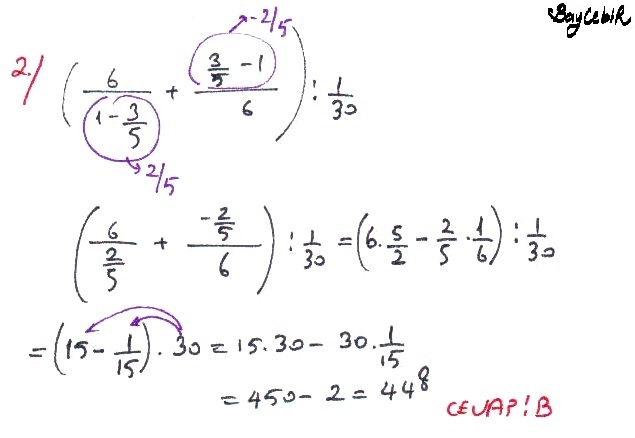 BayCebiR
-2/5
2/ ( 6/(1 - 3/5) + (3/5 - 1)/6 ) : 1/30
2/5
( 6/(2/5) + (-2/5)/6 ) : 1/30 = ( 6 . 5/2 - 2/5 . 1/6 ) : 1/30
= ( 15 - 1/15 ) . 30 = 15.30 - 30 . 1/15
= 450 - 2 = 448
CEVAP: B